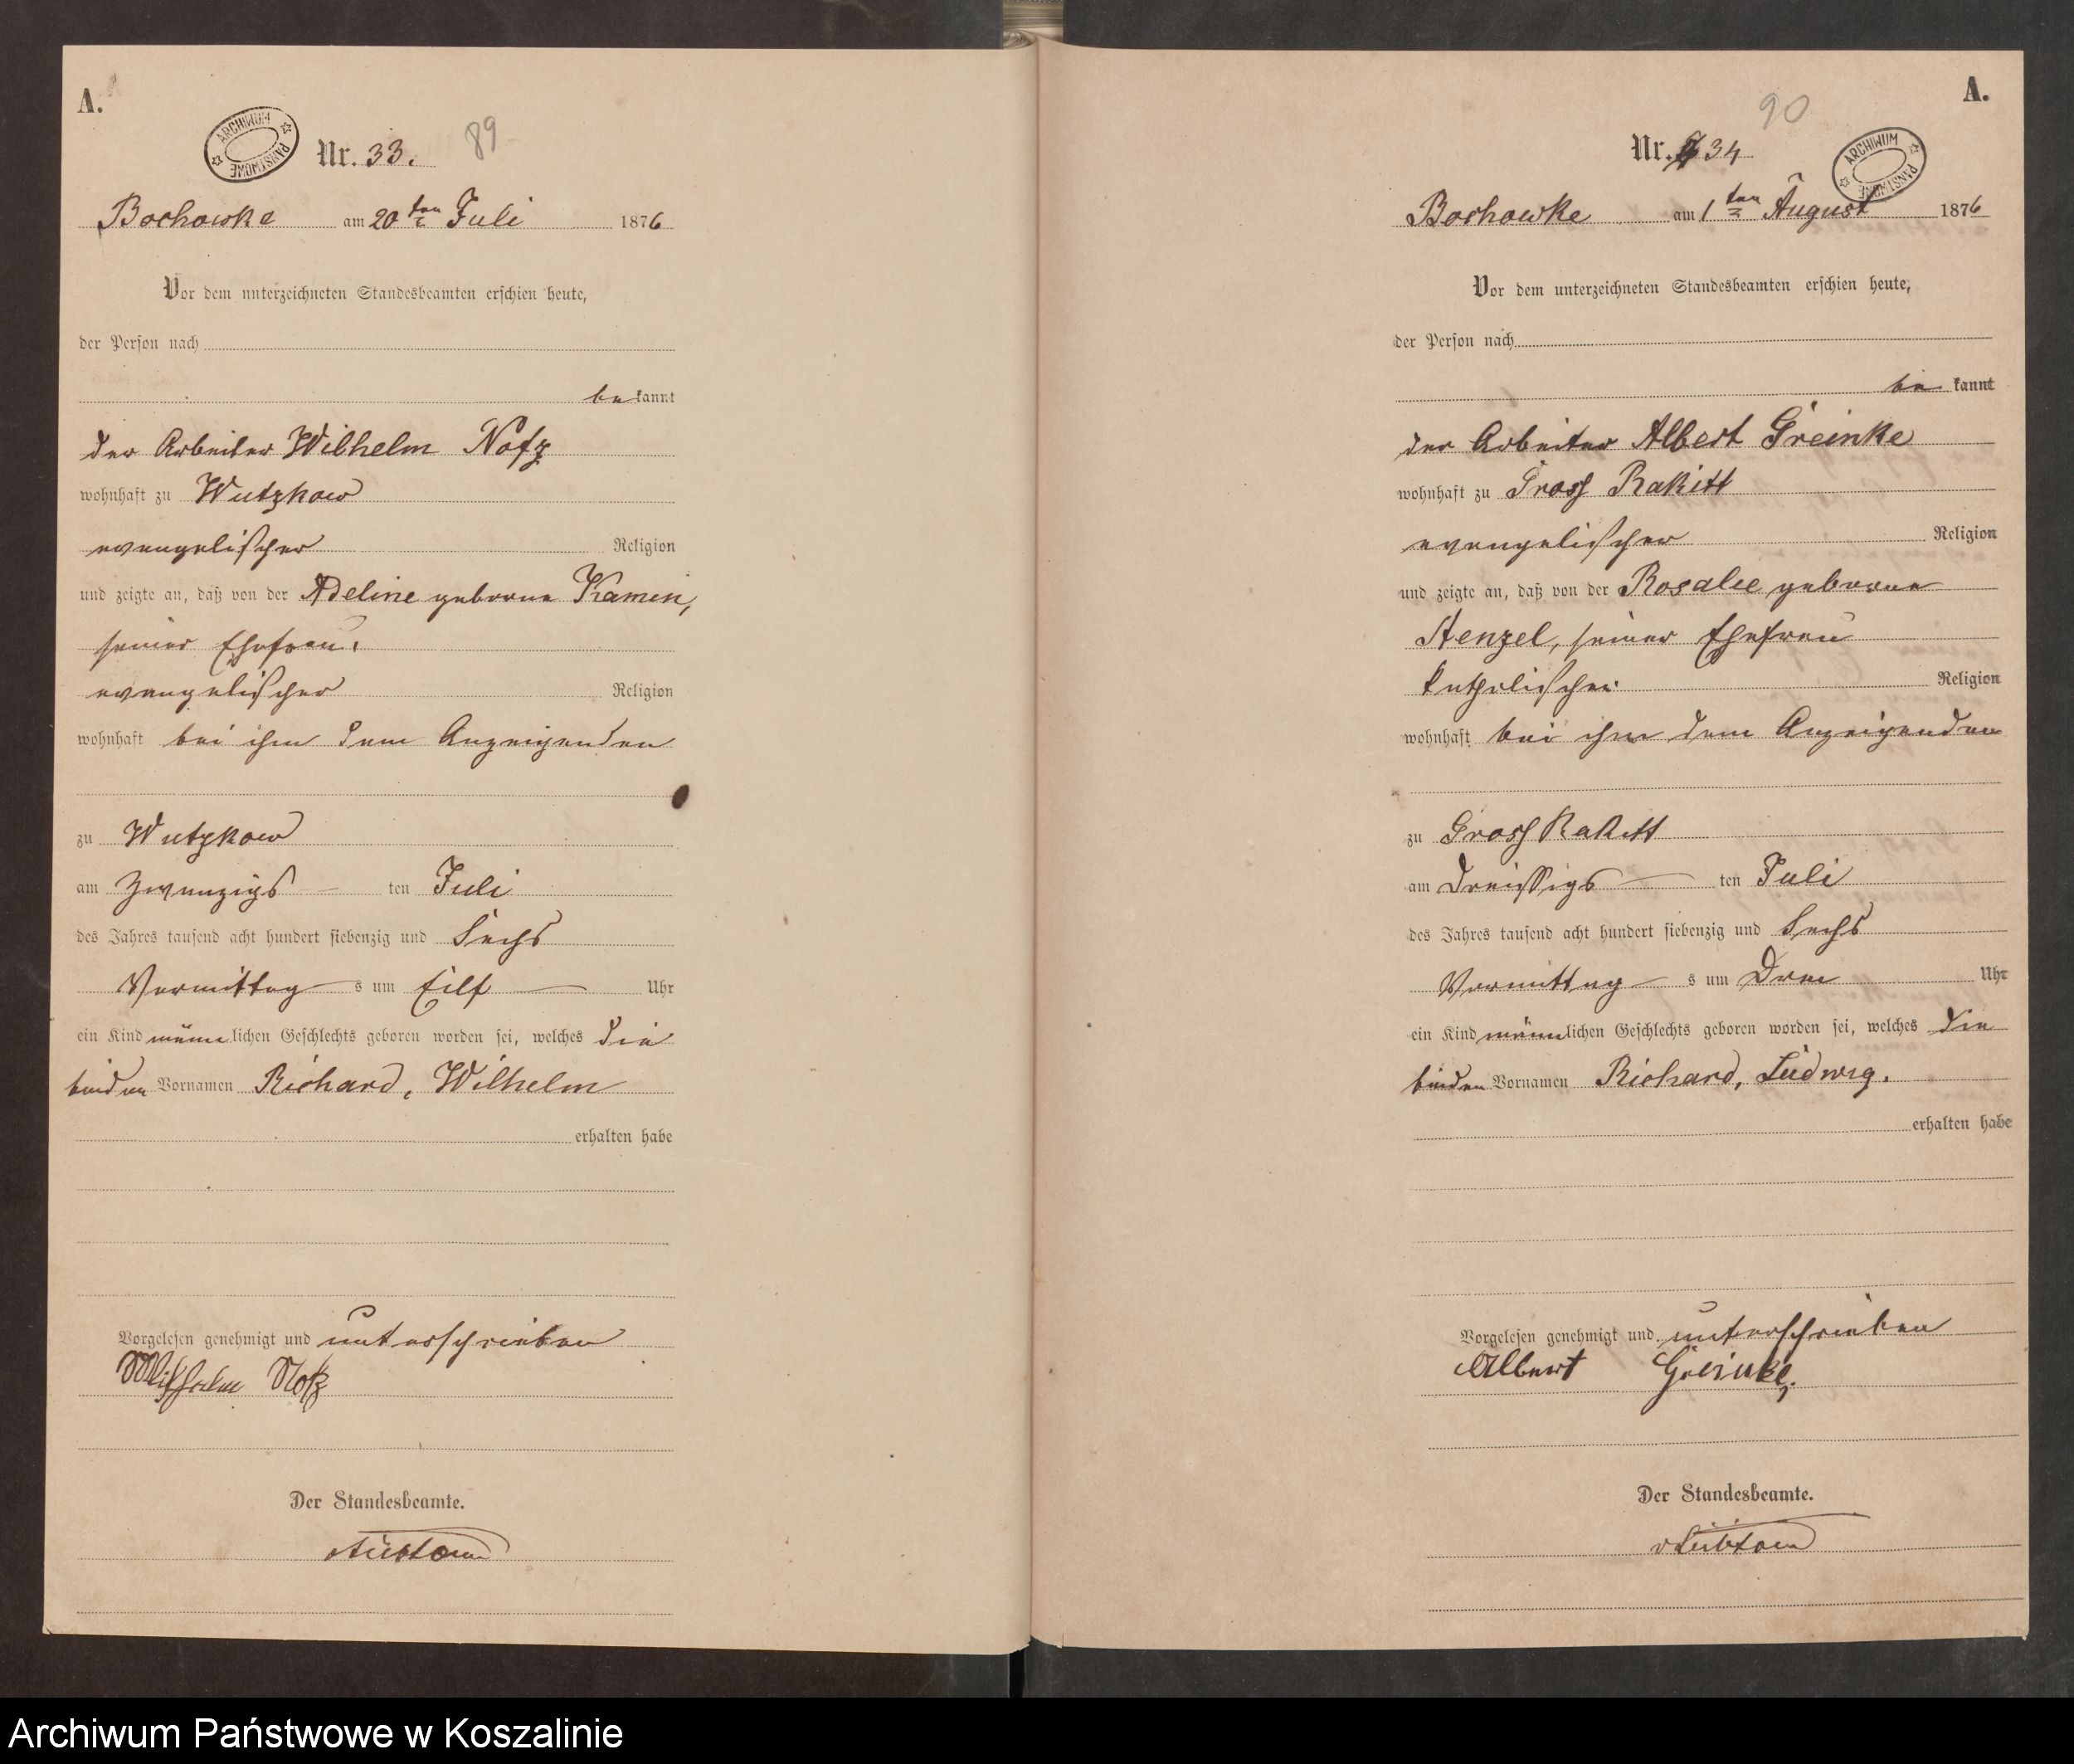 A.
ARCHIWUM PAŃSTWOWE
Nr. 33. 89
Bochowke am 20ten Juli 1876
Vor dem unterzeichneten Standesbeamten erschien heute,
der Person nach
bekannt
der Arbeiter Wilhelm Notz
wohnhaft zu Wutzkow
evangelischer Religion
und zeigte an, daß von der Adeline geborne Kamin,
seiner Ehefrau,
evangelischer Religion
wohnhaft bei ihm dem Anzeigenden
zu Wutzkow
am Zwanzigs ten Juli
des Jahres tausend acht hundert siebenzig und Sechs
Vormittag s um Eilf Uhr
ein Kind männlichen Geschlechts geboren worden sei, welches die
beiden Vornamen Richard, Wilhelm
erhalten habe
Vorgelesen genehmigt und unterschrieben
Wilhelm Notz
Der Standesbeamte.
A.
90
Nr. 34
ARCHIWUM PAŃSTWOWE
Bochowke am 1ten August 1876
Vor dem unterzeichneten Standesbeamten erschien heute,
der Person nach
be kannt
der Arbeiter Albert Greinke
wohnhaft zu Gross Rakitt
evangelischer Religion
und zeigte an, daß von der Rosalie geborne
Stenzel, seiner Ehefrau
katholischer Religion
wohnhaft bei ihm dem Anzeigenden
zu Gross Rakitt
am Dreissigs ten Juli
des Jahres tausend acht hundert siebenzig und Sechs
Vormittag s um Drei Uhr
ein Kind männlichen Geschlechts geboren worden sei, welches die
beiden Vornamen Richard, Ludwig.
erhalten habe
Vorgelesen genehmigt und unterschrieben
Albert Greinke.
Der Standesbeamte.
Archiwum Państwowe w Koszalinie